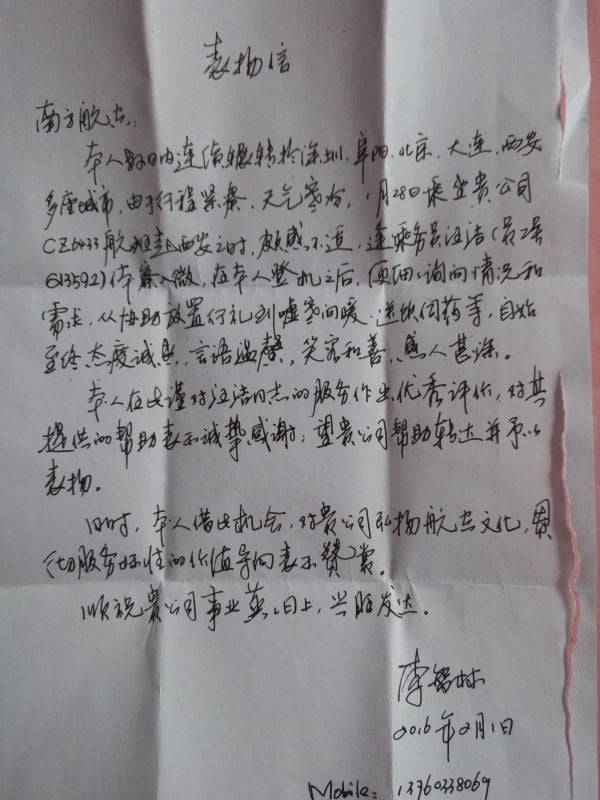 表扬信
南方航空:
本人数日内连续辗转于深圳、阜阳、北京、大连、西安
多座城市,由于行程紧凑、天气寒冷,1月28日乘坐贵公司
CZ6433航班赴西安之时,颇感不适,逢乘务员汪洁(员工号
613592)体察入微,在本人登机之后,便细心询问情况和
需求,从协助放置行礼到嘘寒问暖、送饮伺药等,自始
至终态度诚恳,言语温馨,笑容和善,感人甚深。
本人在此谨对汪洁同志的服务作出优秀评价,对其
提供的帮助表示诚挚感谢;望贵公司帮助转达并予以
表扬。
同时,本人借此机会,对贵公司弘扬航空文化,
服务标性的价值导向表示赞赏。
顺祝贵公司事业蒸蒸日上,兴旺发达。
李
2016年2月1日
Mobile: 13760338069